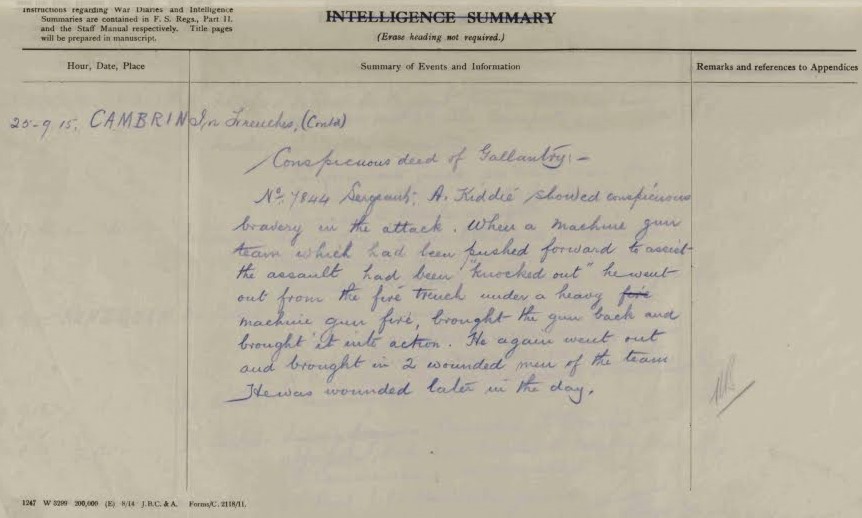 Instructions regarding War Diaries and Intelligence
Summaries are contained in F. S. Regs., Part II.
and the Staff Manual respectively. Title pages
will be prepared in manuscript.
INTELLIGENCE SUMMARY
(Erase heading not required.)
Hour, Date, Place
Summary of Events and Information
Remarks and references to Appendices
25-9-15. CAMBRIN In Trenches, (Contd)
Conspicuous deed of Gallantry:-
No. 7844 Sergeant A. Kiddie showed conspicuous
bravery in the attack. When a machine gun
team which had been pushed forward to assist
the assault had been "knocked out" he went
out from the fire trench under a heavy fire
machine gun fire, brought the gun back and
brought it into action. He again went out
and brought in 2 wounded men of the team
He was wounded later in the day.
1247 W 3299 200,000 (E) 8/14 J.B.C. & A. Forms/C. 2118/11.